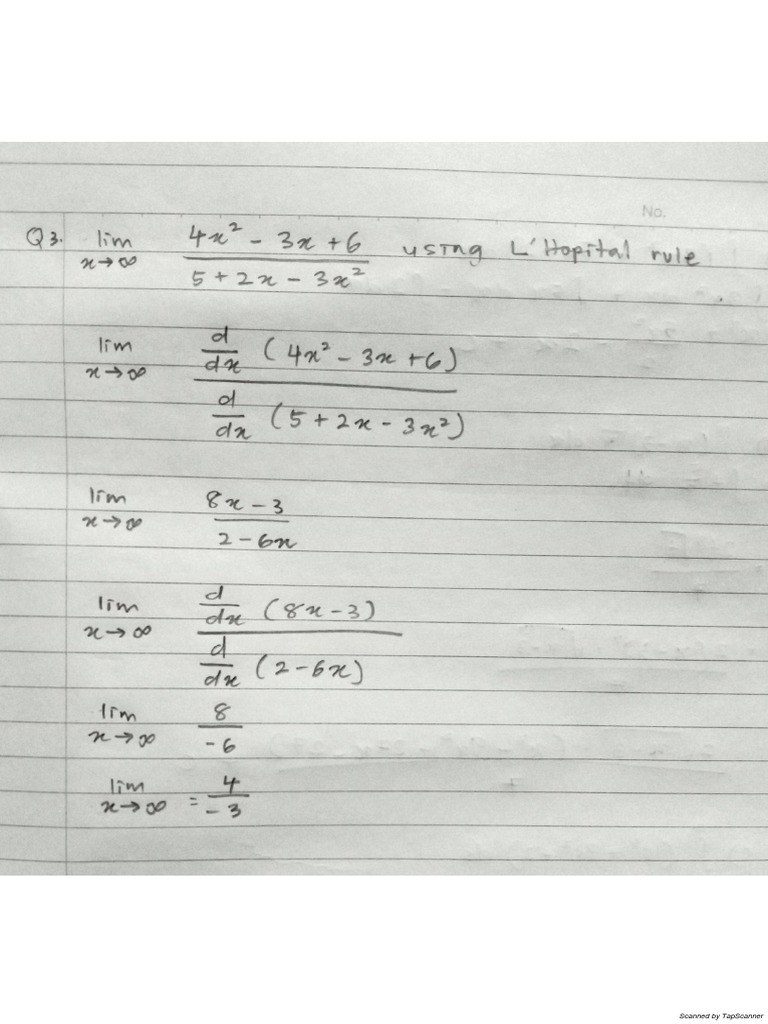 No.
Q3. lim x→∞ (4x² - 3x + 6)/(5 + 2x - 3x²) using L'Hopital rule
lim x→∞ (d/dx (4x² - 3x + 6))/(d/dx (5 + 2x - 3x²))
lim x→∞ (8x - 3)/(2 - 6x)
lim x→∞ (d/dx (8x - 3))/(d/dx (2 - 6x))
lim x→∞ 8/-6
lim x→∞ = 4/-3
Scanned by TapScanner